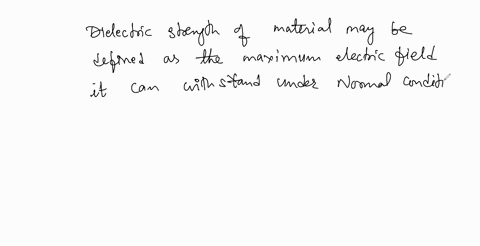 Dielectric strength of material may be
defined as the maximum electric field
it can withstand under Normal conditi